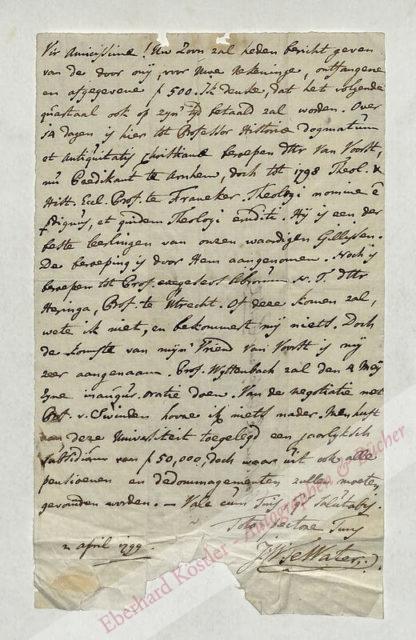 Vir Amicissime! Uw Zoon zal heden bericht geven
van de door mij, voor Uwe rekeninge, ontfangene
en afgegevene f 500. Ik denke, dat het volgende
quartaal ook op zijn tijd betaald zal worden. Over
14 dagen is hier tot Professor Historiae dogmatum
et Antiquitatis Christianae beroepen dttr Van Voorst,
nu Predikant te Arnhem, doch tot 1798 Theol. &
Hist. Eccl. Prof. te Franeker. Theologi nomine
dignus, et quidem Theologi eruditi. Hij is een der
beste leerlingen van onzen waardigen Gillissen.
De beroeping is door Hem aangenomen. Noch is
beroepen tot Prof. exegeseos librorum N. T. dttr
Heringa, Prof. te Utrecht. Of deze komen zal,
wete ik niet, en bekommert mij niets. Doch
de komste van mijn Vriend van Voorst is mij
zeer aangenaam. Prof. Wyttenbach zal den 4 Meij
zyne inaugur. oratie doen. Van de negotiatie met
Prof. v. Swinden hoore ik niets nader. Men heeft
aan deze Universiteit toegelegd een jaarlyksch
subsidium van f 50,000, doch waar uit ook alle
pensioenen en dedommagementen zullen moeten
gevonden worden. — Vale cum Tuis
Toto pectore Tuus
2 april 1799. J. W. te Water.
Eberhard Köstler - Autographen & Bücher